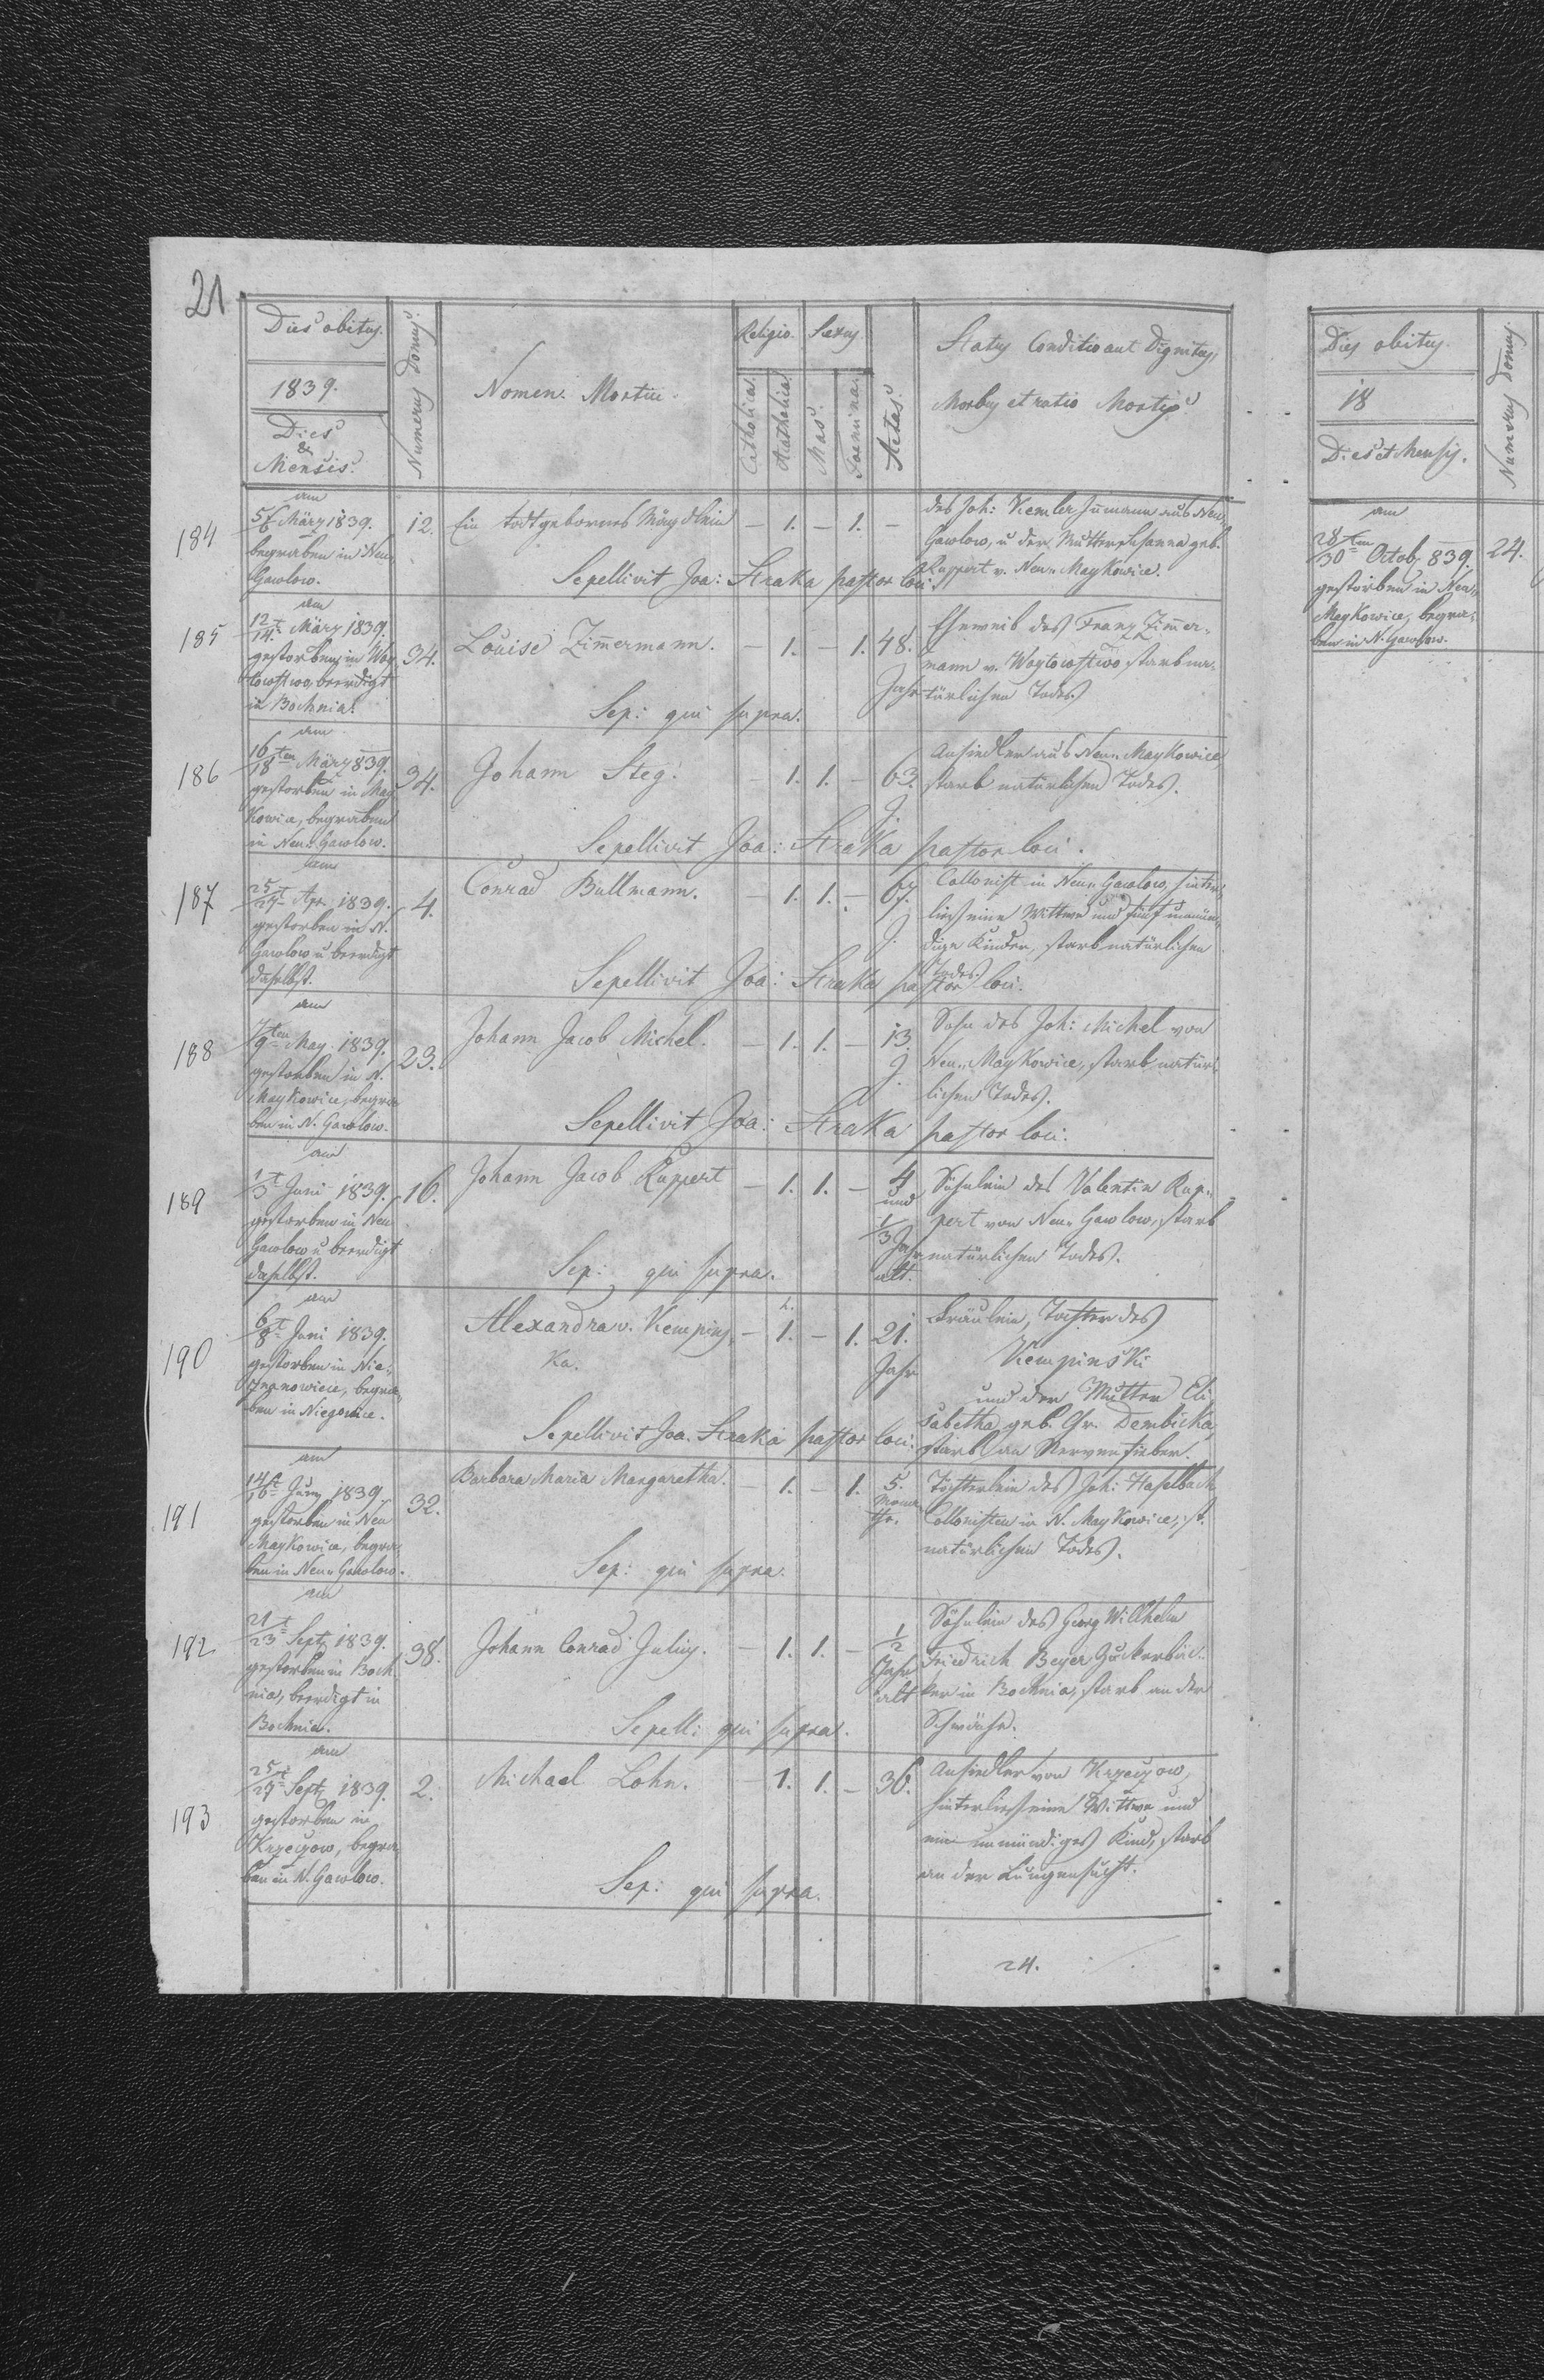 21
Dies obitus.
1839.
Dies
&
Mensis.
Numerus Domus.
Nomen Mortui.
Religio.
Catholica
Acatholica
Sexus
Mas.
Foemina.
Aetas.
Status Conditio aut Dignitas,
Morbus et ratio Mortis
184
am
5/6 März 1839.
begraben in Neu-
Gawlow.
12.
Ein todtgebornes Mägdlein
– 1. – 1. –
des Joh: Kemler Inmann aus Neu-
Gawlow, u der Mutter Susanna geb.
Ruppert v. Neu-Maykowice.
Sepellivit Joa: Straka pastor loci.
185
am
12/14 t März 1839.
gestorben in Woy-
towstwo, beerdigt
in Bochnia.
34.
Louise Zimermann.
– 1. – 1. 48.
Jahr
Eheweib des Franz Zimmer-
mann v. Woytowstwo, starb na-
türlichen Todes.
Sep: qui supra.
186
am
16/18 ten März 839.
gestorben in May-
kowice, begraben
in Neu-Gawlow.
34.
Johann Steg.
– 1. 1. – 63.
J.
Ansiedler aus Neu-Maykowice,
starb natürlichen Todes.
Sepellivit Joa: Straka pastor loci.
187
am
25/27 t Apr. 1839.
gestorben in N.
Gawlow u beerdigt
daselbst.
4.
Conrad Bullmann.
– 1. 1. – 67.
J.
Collonist in Neu-Gawlow, hinter-
ließ eine Wittwe und fünf unmün-
dige Kinder, starb natürlichen
Todes.
Sepellivit Joa: Straka pastor loci.
188
am
7/9 ten May 1839.
gestorben in N.
Maykowice, begra-
ben in N. Gawlow.
23.
Johann Jacob Michel.
– 1. 1. – 13.
J.
Sohn des Joh: Michel von
Neu-Maykowice, starb natür-
lichen Todes.
Sepellivit Joa: Straka pastor loci.
189
am
1/3 t Juni 1839.
gestorben in Neu
Gawlow u beerdigt
daselbst.
16.
Johann Jacob Ruppert
– 1. 1. – 4
und
1/3 Jahr
alt.
Söhnlein des Valentin Rup-
pert von Neu-Gawlow, starb
natürlichen Todes.
Sep: qui supra.
190
am
6/8 t Juni 1839.
gestorben in Nie-
znanowice, begra-
ben in Niegowice.
Alexandra v. Kempins-
ka.
– 1. – 1. 21.
Jahr
Fräulein, Tochter des
Kempinski
und der Mutter Eli
sabetha geb. Gr. Dembicka,
starb an Nervenfieber.
Sepellivit Joa. Straka pastor loci.
191
am
14/16 t Juny 1839.
gestorben in Neu
Maykowice, begra-
ben in Neu-Gawlow.
32.
Barbara Maria Margaretha.
– 1. – 1. 5.
Mona-
the.
Töchterlein des Joh: Haselbach
Collonisten in N. Maykowice, st.
natürlichen Todes.
Sep: qui supra.
192
am
21/23 t Sept 1839.
gestorben in Boch-
nia, beerdigt in
Bochnia.
38.
Johann Conrad Julius.
– 1. 1. – 1/2
Jahr
alt
Söhnlein des Georg Willhelm
Friedrich Beyer Zuckerbäc-
ker in Bochnia, starb an der
Schwäche.
Sepell: qui supra.
193
am
25/27 t Sept 1839.
gestorben in
Krzeczow, begra-
ben in N. Gawlow.
2.
Michael Lohn.
– 1. 1. – 36.
Ansiedler von Krzeczow,
hinterließ eine Wittwe und
ein unmündiges Kind, starb
an der Lungensucht.
Sep: qui supra.
24.
Dies obitus.
18
Dies et Mensis.
Numerus Domus
am
28/30 ten Octob 839.
gestorben in Neu-
Maykowice, begra-
ben in N. Gawlow.
24.